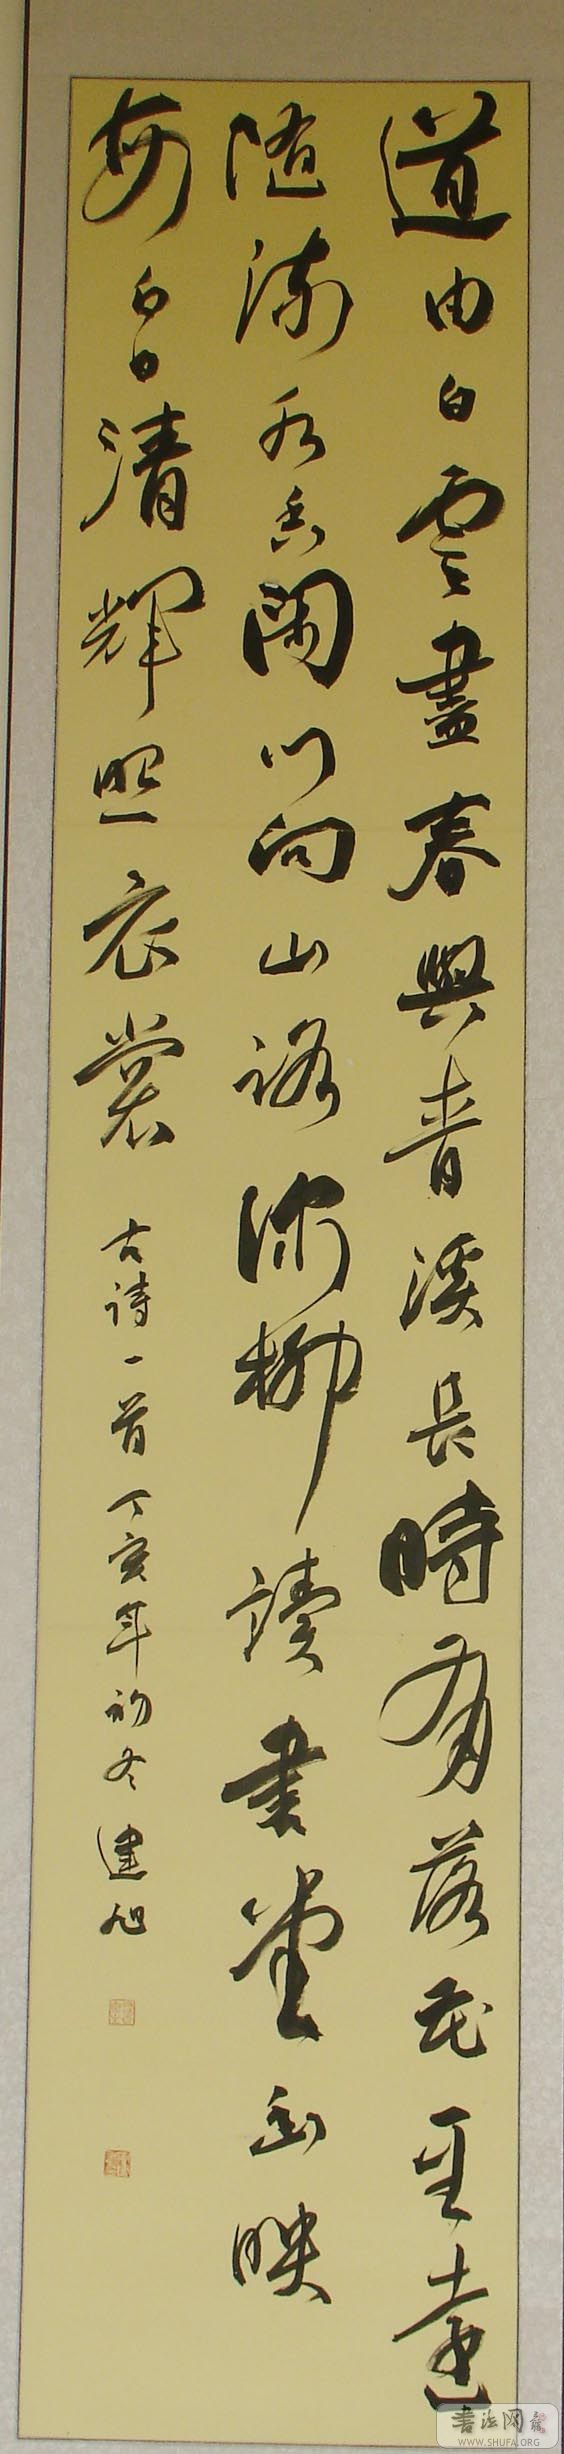 道由白雲盡春與青溪長時有落花至遠
隨流水香閑門向山路深柳讀書堂幽映
每白日清輝照衣裳 古詩一首 丁亥年初冬 建旭
書法网
WWW.SHUFA.ORG